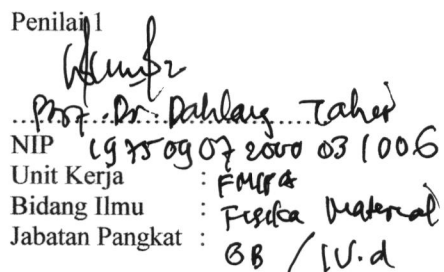 Penilai 1
Prof. Dr. Dahlang Tahir
NIP 19750907 2000 03 1006
Unit Kerja : FMIPA
Bidang Ilmu : Fisika Material
Jabatan Pangkat : GB / IV.d